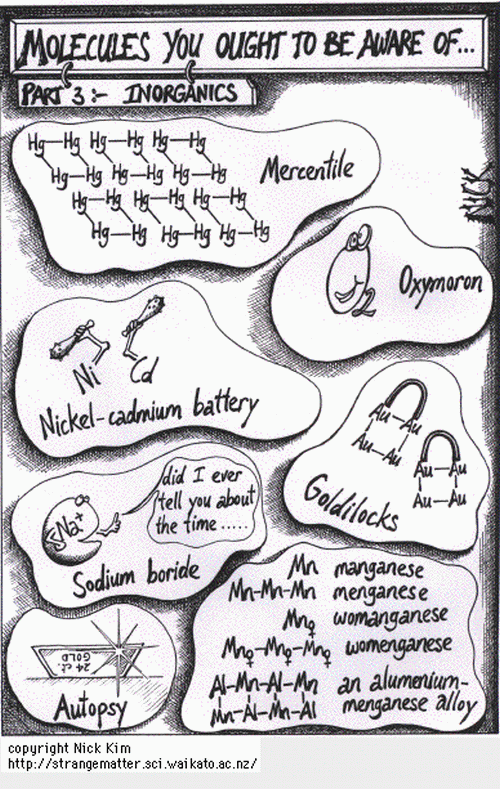 MOLECULES YOU OUGHT TO BE AWARE OF...
PART 3:- INORGANICS
Hg-Hg Hg-Hg Hg-Hg
Hg-Hg Hg-Hg Hg-Hg
Hg-Hg Hg-Hg Hg-Hg
Hg-Hg Hg-Hg Hg-Hg
Mercentile
NICK
O2
Oxymoron
Ni Cd
Nickel-cadmium battery
Au-Au
Au-Au
Au-Au
Au-Au
Goldilocks
Na+
did I ever
tell you about
the time .....
Sodium boride
24 ct.
GOLD
Autopsy
Mn manganese
Mn-Mn-Mn menganese
Mn♀ womanganese
Mn♀-Mn♀-Mn♀ womenganese
Al-Mn-Al-Mn an alumenium-
Mn-Al-Mn-Al menganese alloy
copyright Nick Kim
http://strangematter.sci.waikato.ac.nz/